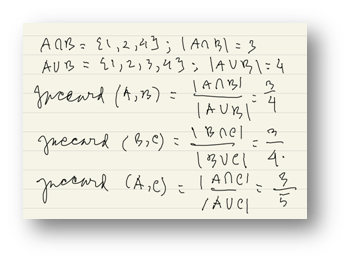 A∩B = {1,2,4} ; |A∩B| = 3
A∪B = {1,2,3,4} ; |A∪B| = 4
Jaccard (A,B) = |A∩B| / |A∪B| = 3/4
Jaccard (B,C) = |B∩C| / |B∪C| = 3/4.
Jaccard (A,C) = |A∩C| / |A∪C| = 3/5